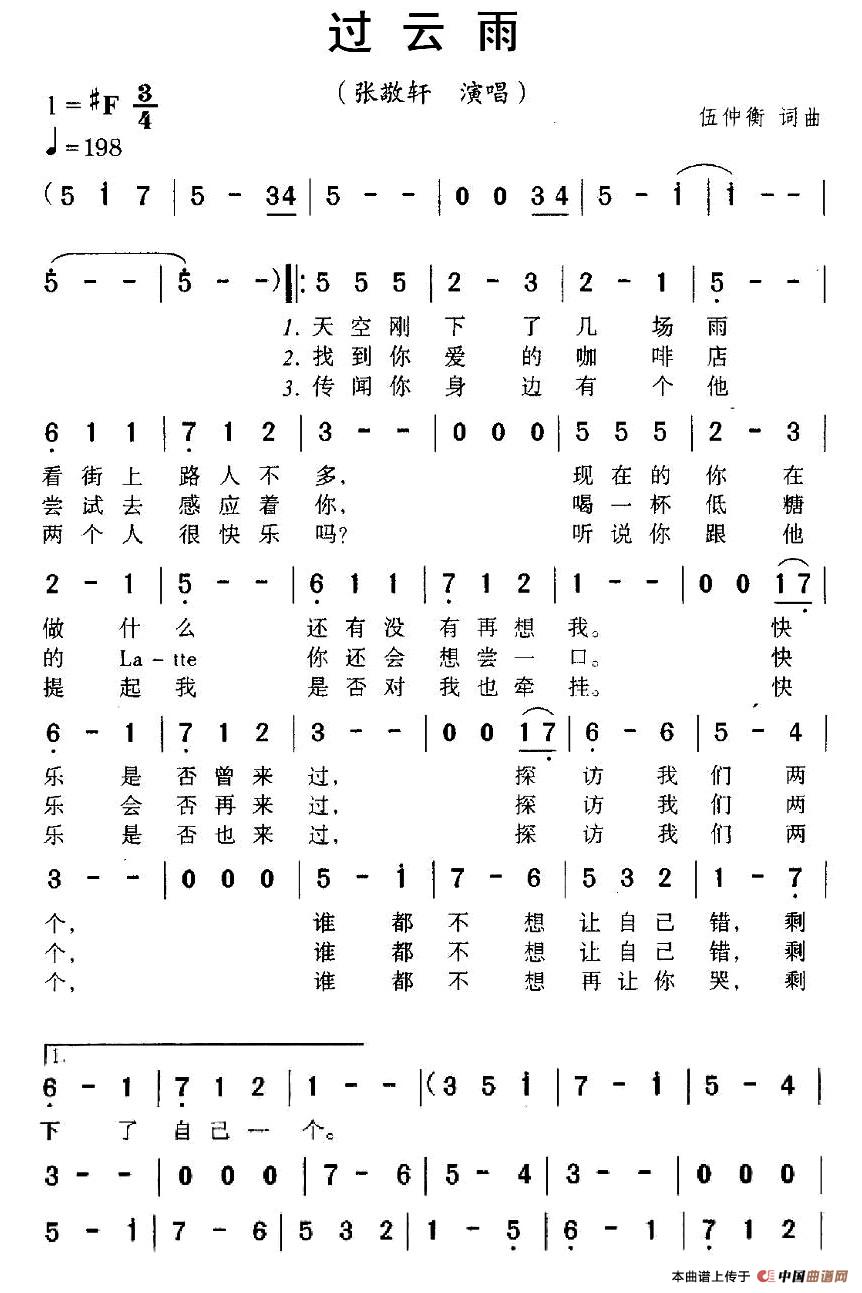 过云雨
（张敬轩 演唱）
1=♯F 3/4
♩=198
伍仲衡 词曲
(5 i 7 | 5 - 34 | 5 - - | 0 0 34 | 5 - i | i - - |
5̇ - - | 5̇ - -) ‖: 5 5 5 | 2 - 3 | 2 - 1 | 5̣ - - |
1. 天空刚下了几场雨
2. 找到你爱的咖啡店
3. 传闻你身边有个他
6̣ 1 1 | 7̣ 1 2 | 3 - - | 0 0 0 | 5 5 5 | 2 - 3 |
看街上路人不多, 现在的你在
尝试去感应着你, 喝一杯低糖
两个人很快乐吗? 听说你跟他
2 - 1 | 5̣ - - | 6̣ 1 1 | 7̣ 1 2 | 1 - - | 0 0 17̣ |
做什么 还有没有再想我。 快
的 La-tte 你还会想尝一口。 快
提起我 是否对我也牵挂。 快
6̣ - 1 | 7̣ 1 2 | 3 - - | 0 0 17̣ | 6̣ - 6̣ | 5 - 4 |
乐是否曾来过, 探访我们两
乐会否再来过, 探访我们两
乐是否也来过, 探访我们两
3 - - | 0 0 0 | 5 - i | 7 - 6 | 5 3 2 | 1 - 7̣ |
个, 谁都不想让自己错, 剩
个, 谁都不想让自己错, 剩
个, 谁都不想再让你哭, 剩
1.
6̣ - 1 | 7̣ 1 2 | 1 - - | (3 5 i | 7 - i | 5 - 4 |
下了自己一个。
3 - - | 0 0 0 | 7 - 6 | 5 - 4 | 3 - - | 0 0 0 |
5 - i | 7 - 6 | 5 3 2 | 1 - 5̣ | 6̣ - 1 | 7̣ 1 2 |
本曲谱上传于 中国曲谱网